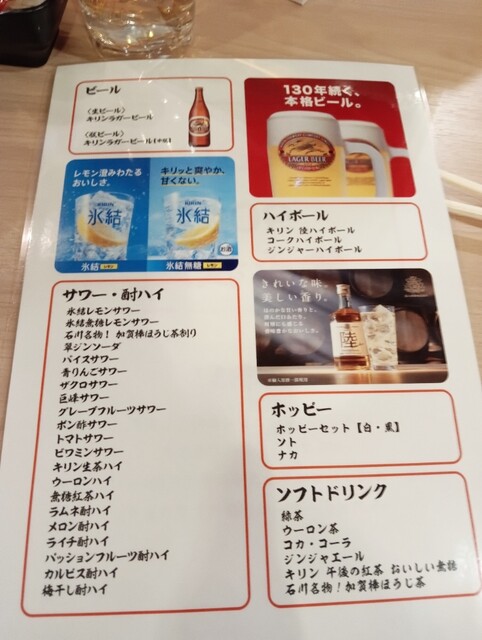 ビール
〈生ビール〉
キリンラガービール
〈瓶ビール〉
キリンラガービール【中瓶】
130年続く、
本格ビール。
KIRIN
LAGER BEER
レモン澄みわたる
おいしさ。
キリッと爽やか、
甘くない。
KIRIN
氷結
KIRIN
氷結
お酒
氷結 レモン
氷結無糖 レモン
ハイボール
キリン 陸ハイボール
コークハイボール
ジンジャーハイボール
サワー・酎ハイ
氷結レモンサワー
氷結無糖レモンサワー
石川名物！加賀棒ほうじ茶割り
翠ジンソーダ
バイスサワー
青りんごサワー
ザクロサワー
巨峰サワー
グレープフルーツサワー
ポン酢サワー
トマトサワー
ビワミンサワー
キリン生茶ハイ
ウーロンハイ
無糖紅茶ハイ
ラムネ酎ハイ
メロン酎ハイ
ライチ酎ハイ
パッションフルーツ酎ハイ
カルピス酎ハイ
梅干し酎ハイ
きれいな味。
美しい香り。
陸
ホッピー
ホッピーセット【白・黒】
ソト
ナカ
ソフトドリンク
緑茶
ウーロン茶
コカ・コーラ
ジンジャエール
キリン 午後の紅茶 おいしい無糖
石川名物！加賀棒ほうじ茶